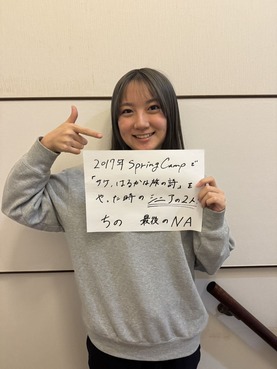 2017年 Spring Campで
「ラマ、はるかな旅の詩」を
やった時のシニアの2人
ちの 最後のNA